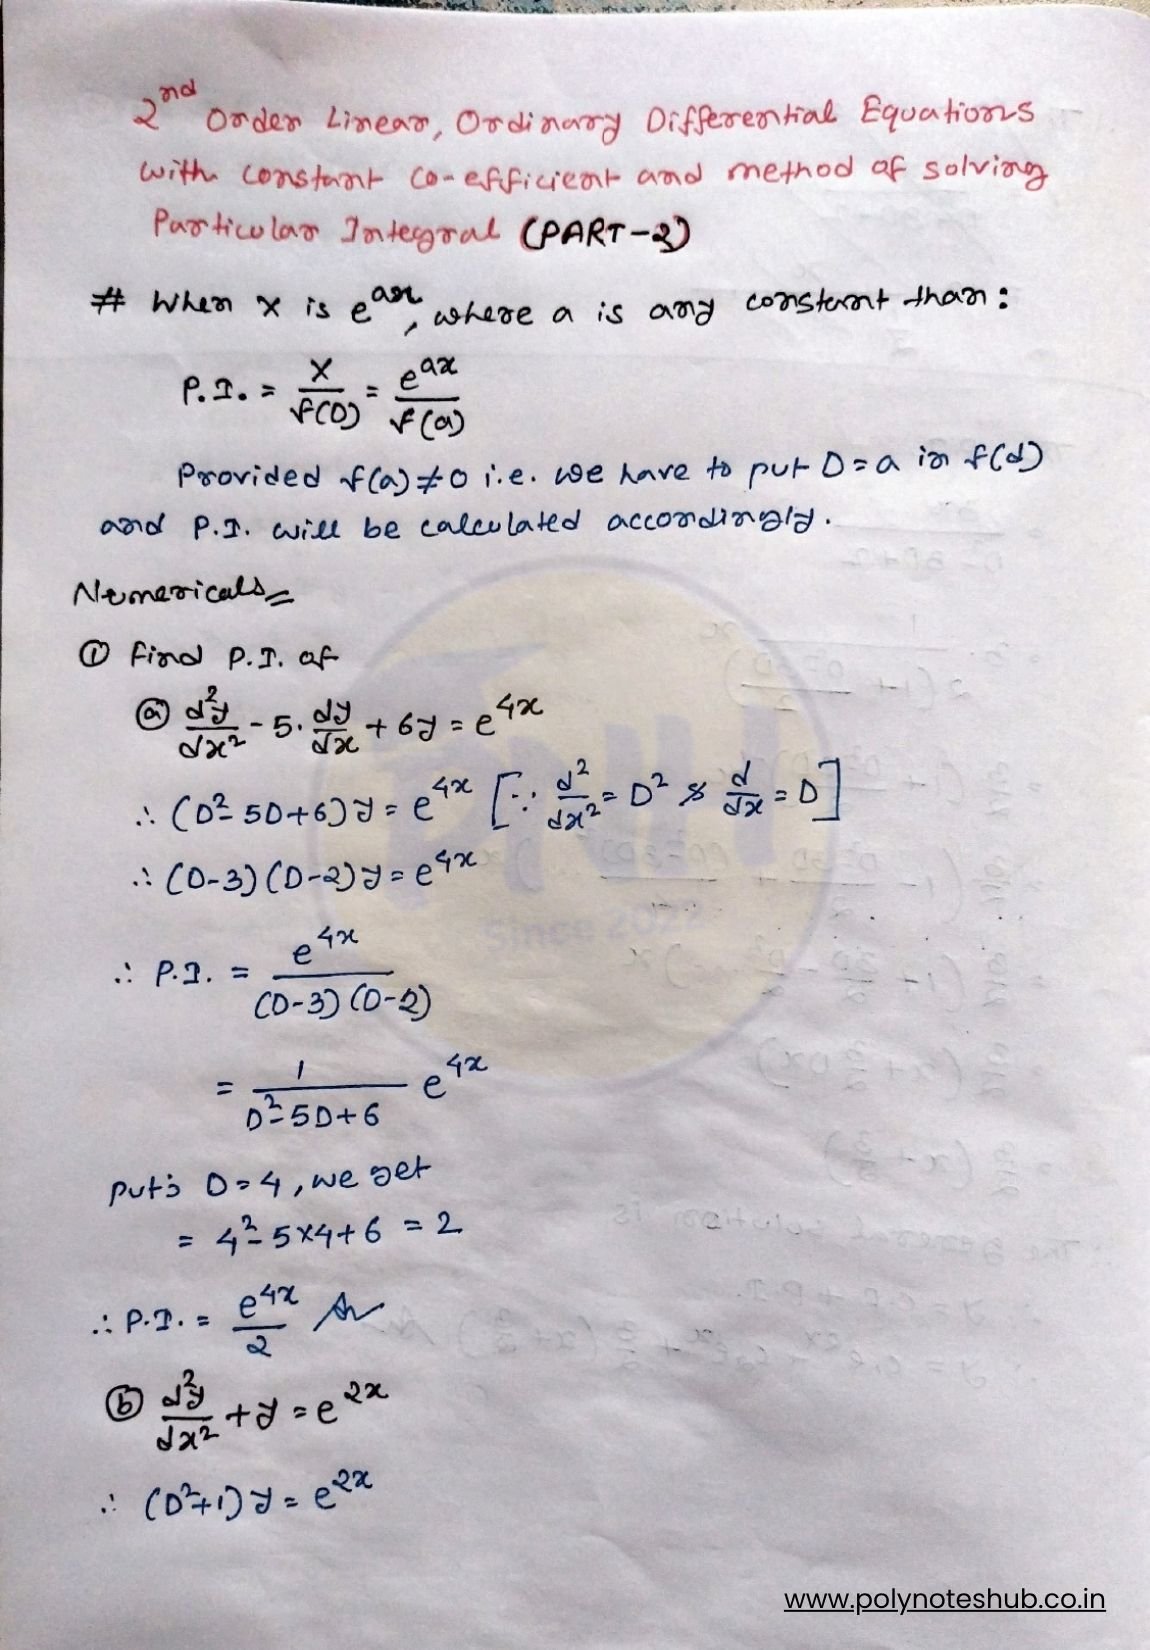 2nd Order Linear, Ordinary Differential Equations
with constant co-efficient and method of solving
Particular Integral (PART-2)
# When X is e^ax, where a is any constant than:
P.I. = X/f(D) = e^ax/f(a)
Provided f(a)≠0 i.e. we have to put D=a in f(d)
and P.I. will be calculated accordingly.
Numericals=
① Find P.I. of
ⓐ d²y/dx² - 5. dy/dx + 6y = e^4x
∴ (D²-5D+6)y = e^4x [∵ d²/dx² = D² & d/dx = D]
∴ (D-3)(D-2)y = e^4x
∴ P.I. = e^4x/(D-3)(D-2)
= 1/(D²-5D+6) e^4x
D=4, we get
= 4²-5×4+6 = 2
∴ P.I. = e^4x/2
ⓑ d²y/dx² + y = e^2x
∴ (D²+1)y = e^2x
Since 2022
www.polynoteshub.co.in